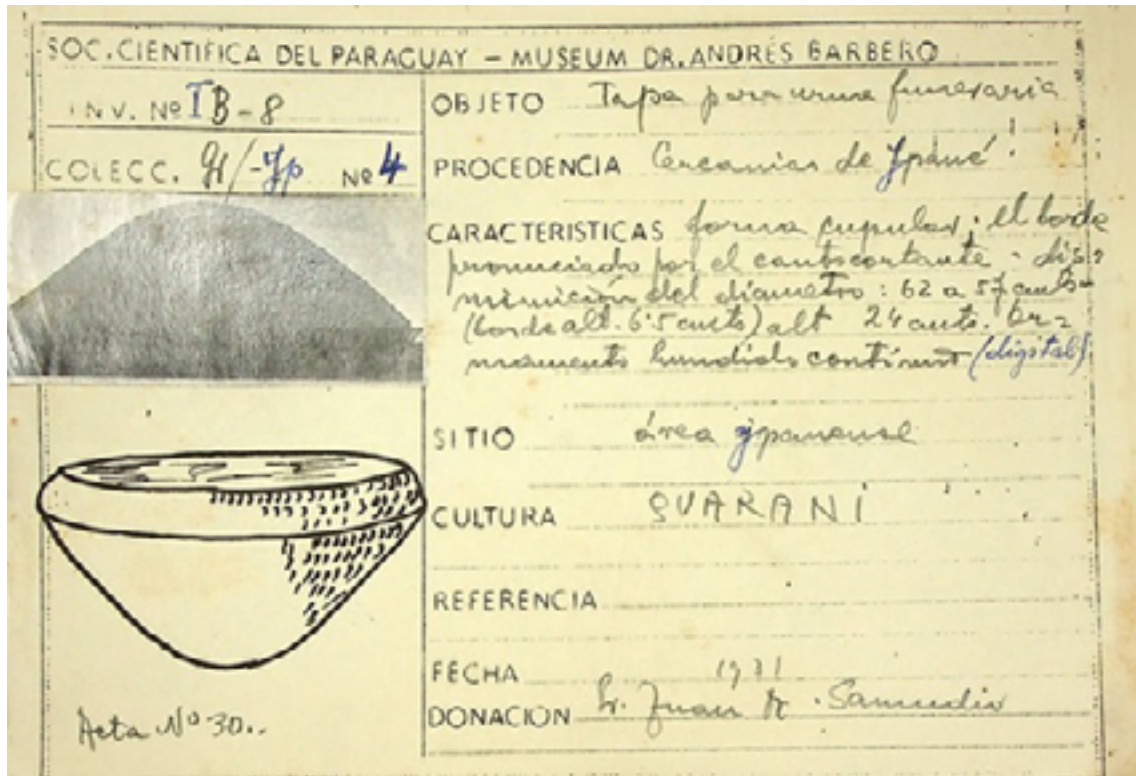 SOC. CIENTIFICA DEL PARAGUAY – MUSEUM DR. ANDRÉS BARBERO
INV. Nº IB-8
COLECC. Nº 4
Acta Nº 30..
OBJETO Tapa para urna funeraria
PROCEDENCIA Cercanias de Ypané
CARACTERISTICAS forma cupular; el borde
pronunciado por el canto cortante - dis=
minución del diametro: 62 a 57 cmts-
(borde alt. 6'5 cmts) alt 24 cmts. Or=
namento hundido continuo (digital)
SITIO área ypanense
CULTURA GUARANÍ
REFERENCIA
FECHA 1931
DONACION Sr. Juan Samudio